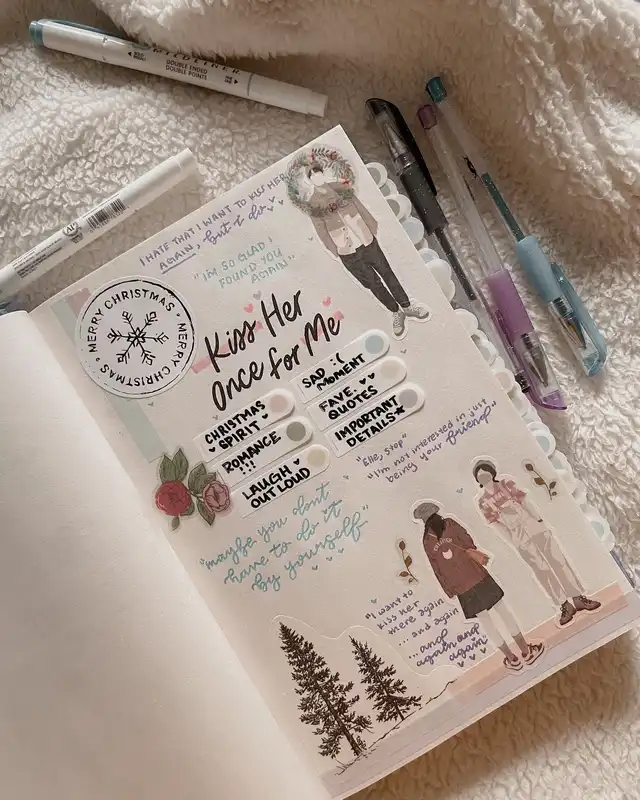 DOUBLE ENDED
DOUBLE POINTS
I HATE THAT I WANT TO KISS HER
AGAIN, but I do
"I'M SO GLAD I
FOUND YOU
AGAIN"
MERRY CHRISTMAS • MERRY CHRISTMAS •
Kiss Her
Once for Me
SAD :(
MOMENT
FAVE
QUOTES
IMPORTANT
DETAILS★
CHRISTMAS
SPIRIT
ROMANCE
!!!
LAUGH
OUT LOUD
"Elle, stop"
"I'm not interested in just
being your friend"
"maybe you don't
have to do it
by yourself"
"I want to
kiss her
there again
...and again
...and
again and
again